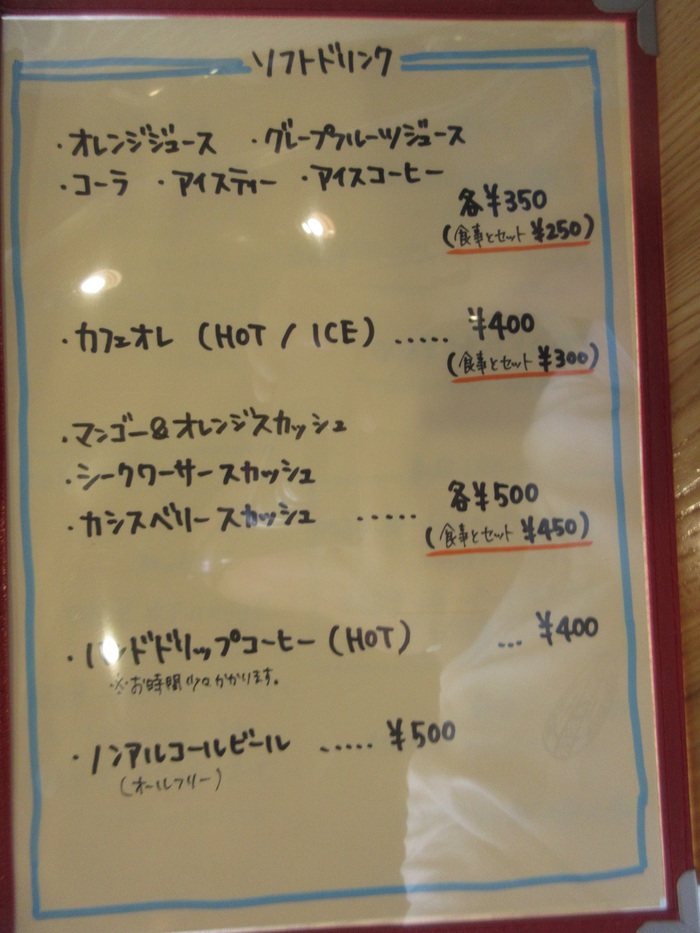 ソフトドリンク
・オレンジジュース ・グレープフルーツジュース
・コーラ ・アイスティー ・アイスコーヒー
各¥350
(食事とセット ¥250)
・カフェオレ (HOT / ICE) ..... ¥400
(食事とセット ¥300)
・マンゴー&オレンジスカッシュ
・シークワーサースカッシュ
・カシスベリースカッシュ ..... 各¥500
(食事とセット ¥450)
・ハンドドリップコーヒー (HOT) ... ¥400
※お時間少々かかります。
・ノンアルコールビール ..... ¥500
(オールフリー)